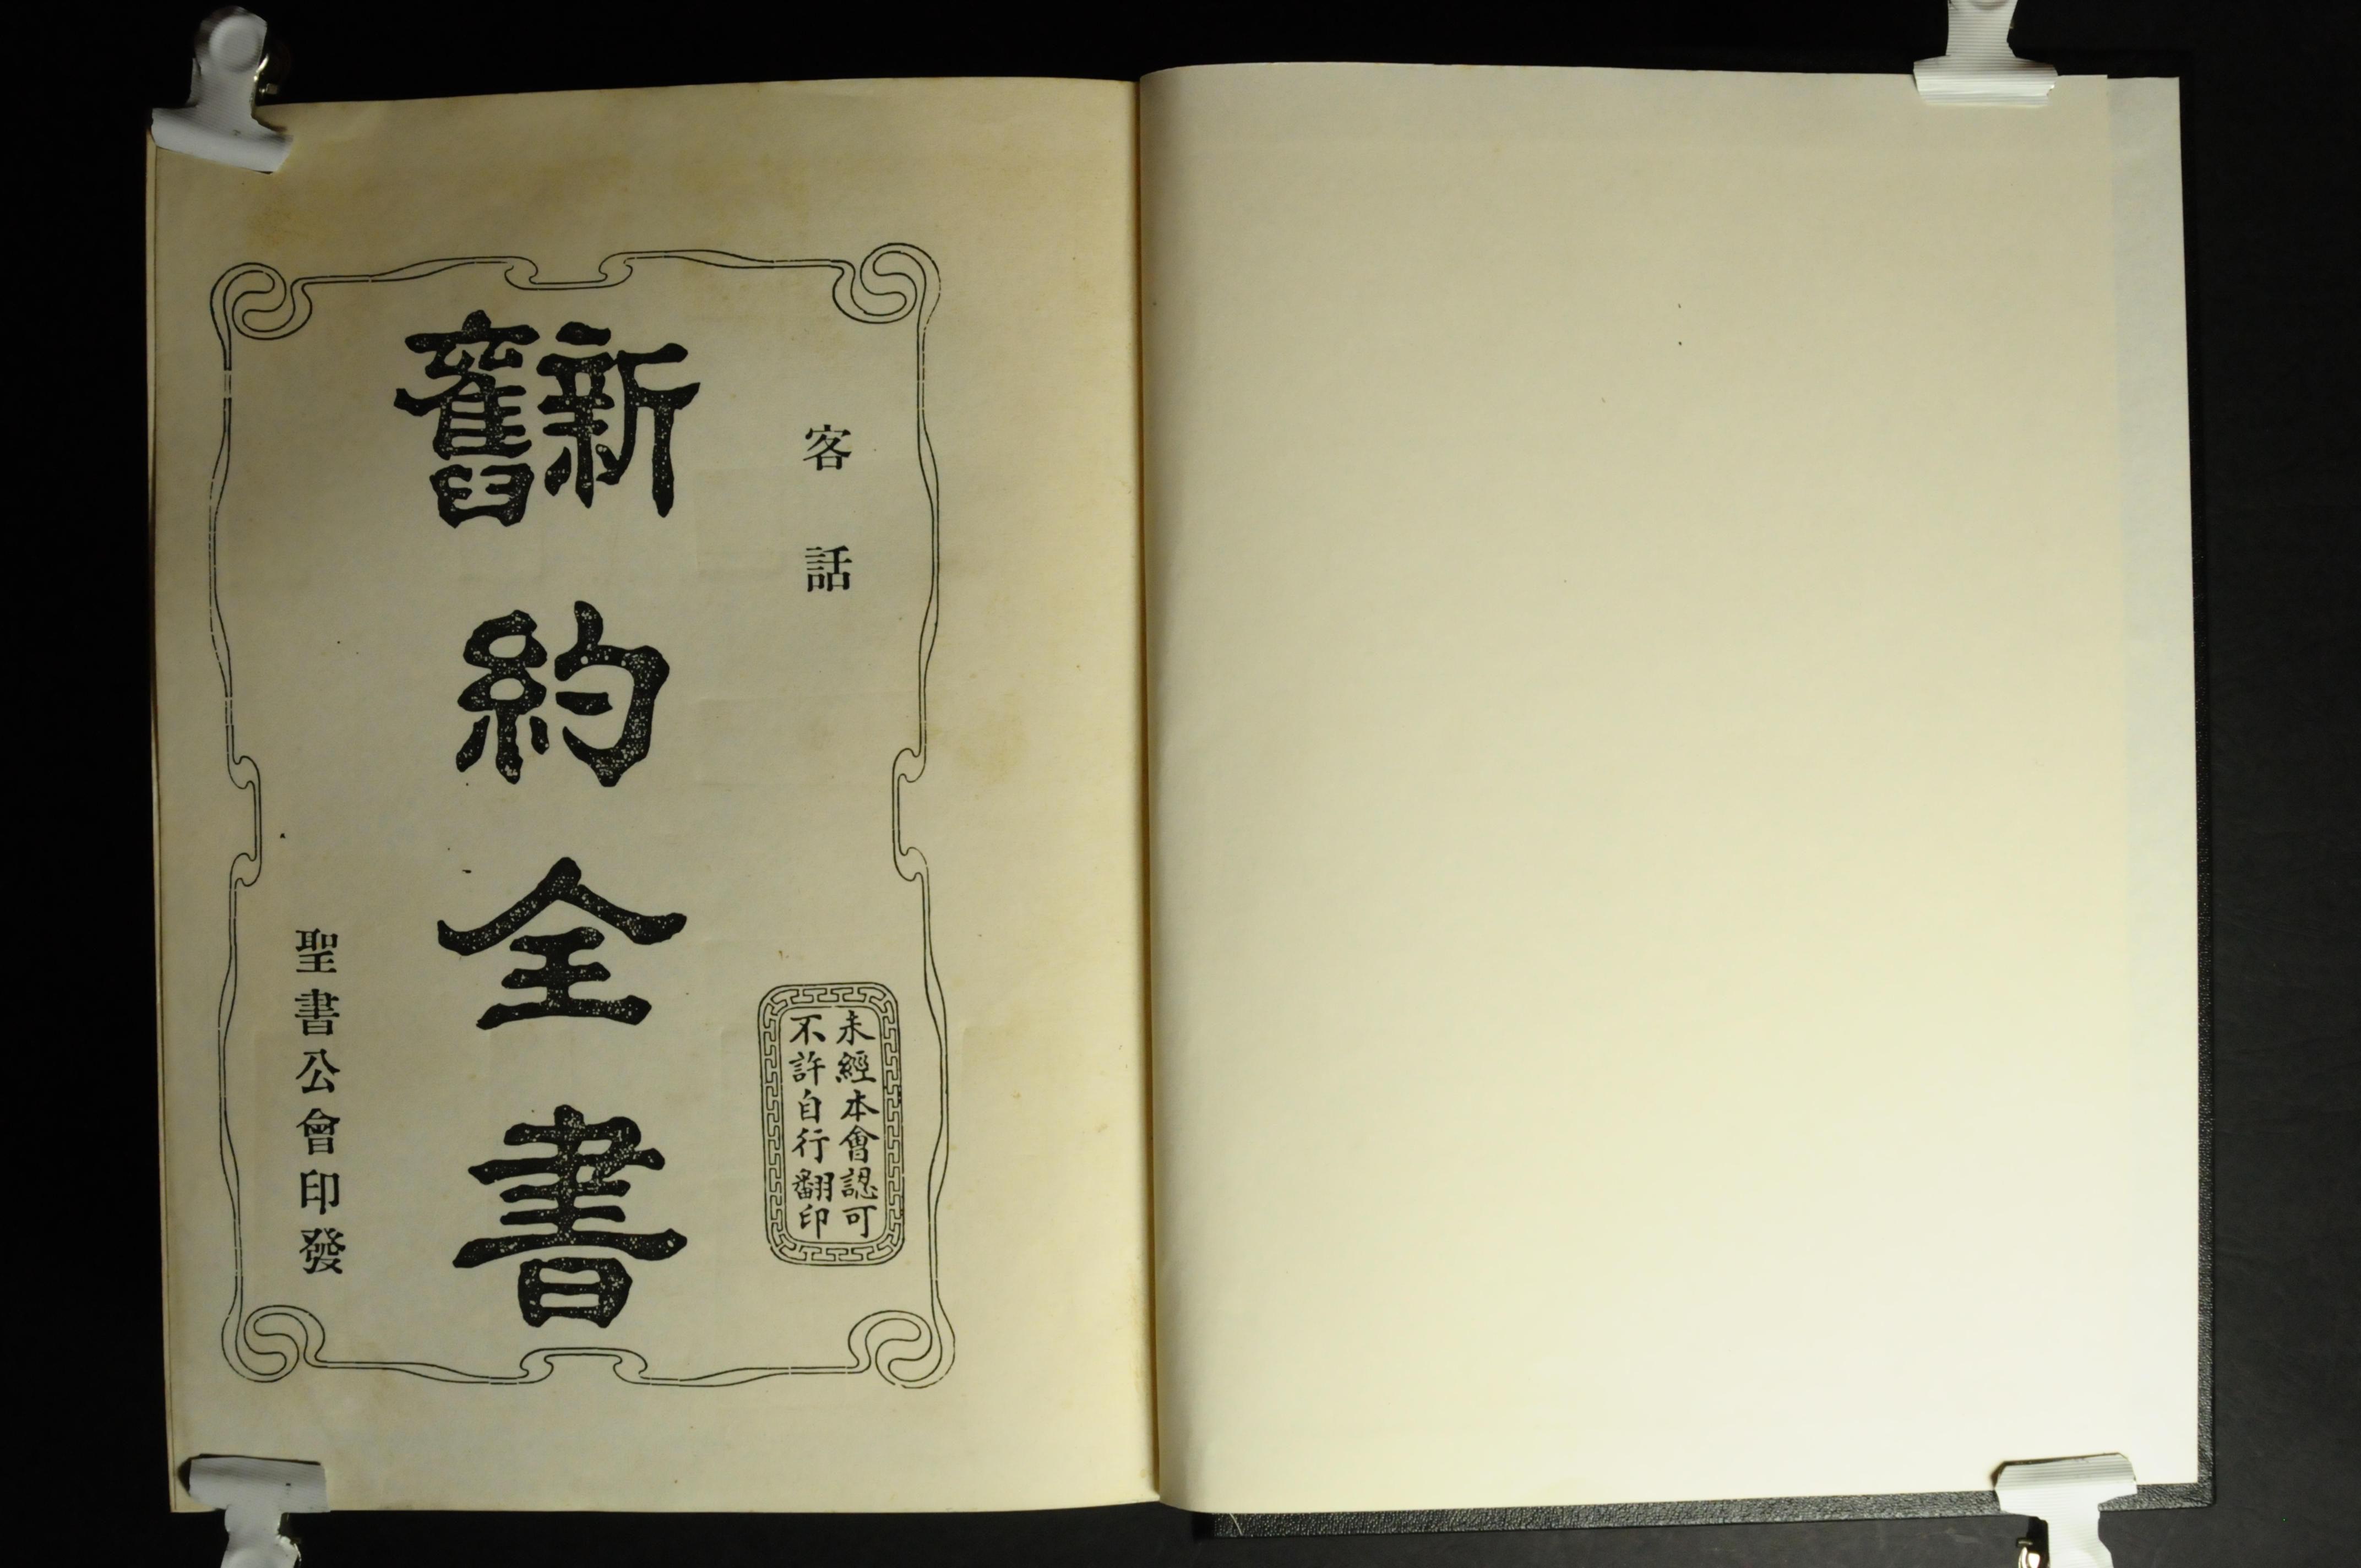 客話
未經本會認可
不許自行翻印
新舊約全書
聖書公會印發